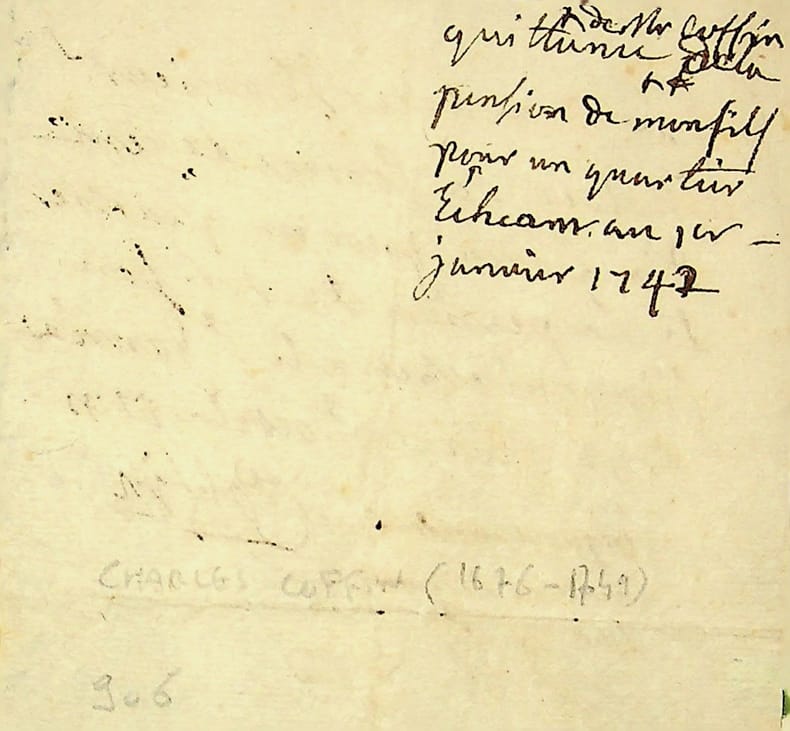 de Mr Coffin
quittance de la
pension de mon fils
pour un quartier
Echeant. au 1er -
janvier 1747
CHARLES COFFIN (1676-1749)
906